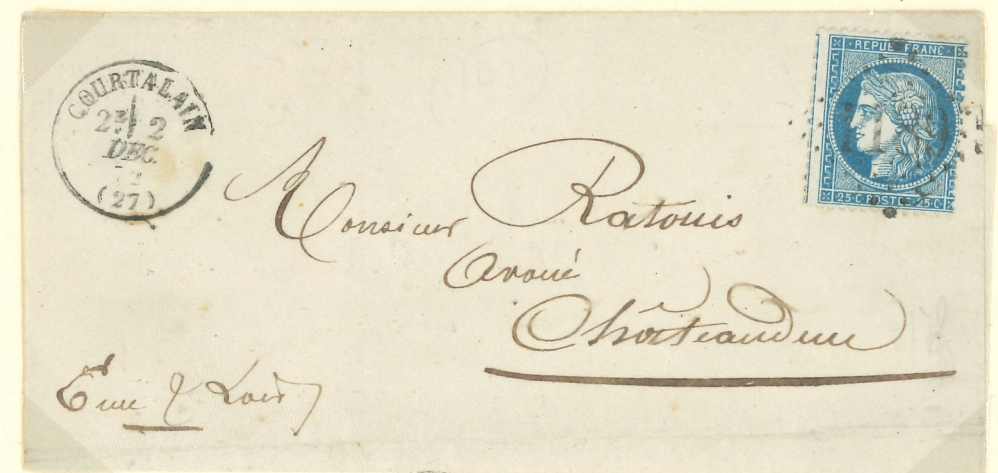 COURTALAIN
2E 2
DEC.
72
(27)
REPUB FRANC
25·C· POSTES ·25·C
Monsieur Ratouis
Avoué
Châteaudun
Eure & Loir